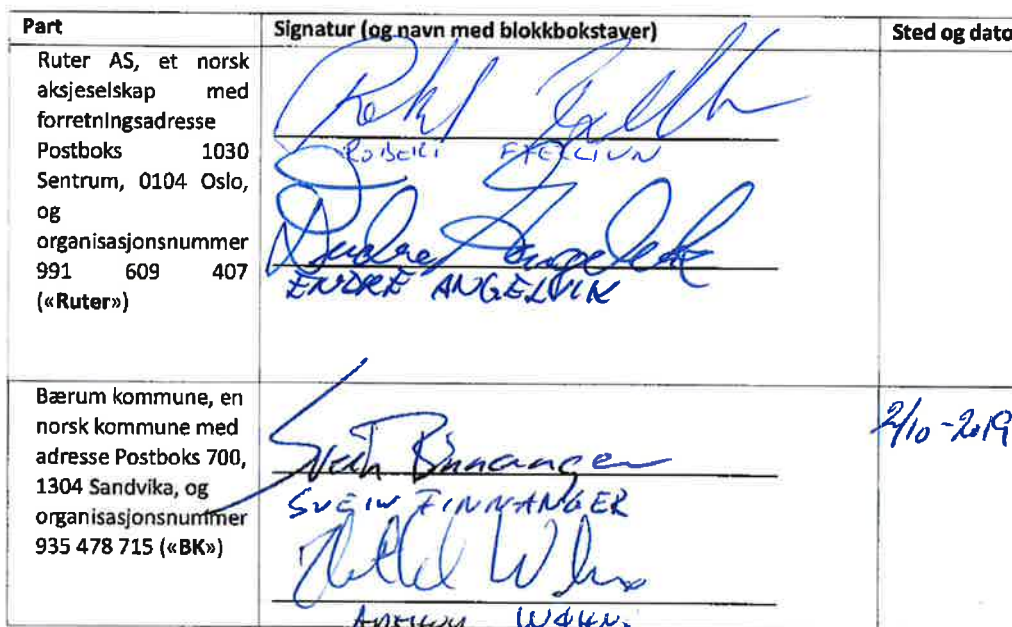 Part
Signatur (og navn med blokkbokstaver)
Sted og dato
Ruter AS, et norsk
aksjeselskap med
forretningsadresse
Postboks 1030
Sentrum, 0104 Oslo,
og
organisasjonsnummer
991 609 407
(«Ruter»)
ROBERT
ENDRE ANGELVIK
Bærum kommune, en
norsk kommune med
adresse Postboks 700,
1304 Sandvika, og
organisasjonsnummer
935 478 715 («BK»)
SVEIN FINNANGER
2/10-2019